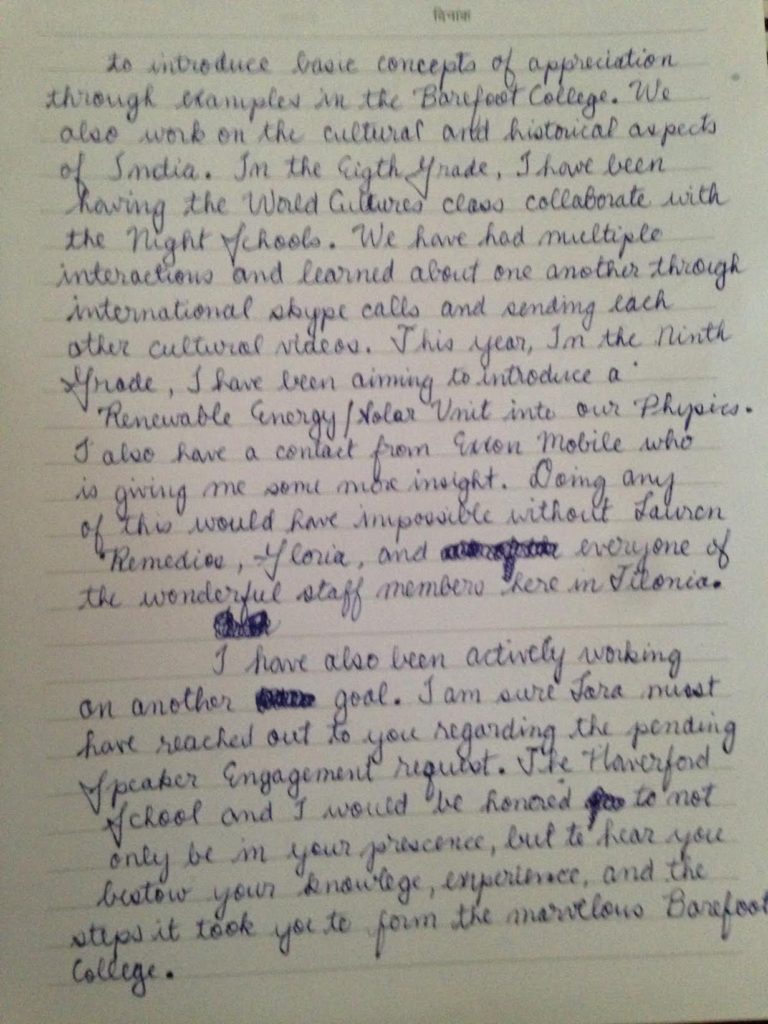 दिनांक
to introduce basic concepts of appreciation
through examples in the Barefoot College. We
also work on the cultural and historical aspects
of India. In the Eigth Grade, I have been
having the World Cultures class collaborate with
the Night Schools. We have had multiple
interactions and learned about one another through
international skype calls and sending each
other cultural videos. This year, In the Ninth
Grade, I have been aiming to introduce a
Renewable Energy/Solar Unit into our Physics.
I also have a contact from Exxon Mobile who
is giving me some more insight. Doing any
of this would have impossible without Lauren
Remedios, Gloria, and everyone of
the wonderful staff members here in Tilonia.
I have also been actively working
on another goal. I am sure Tara must
have reached out to you regarding the pending
Speaker Engagement request. The Haverford
School and I would be honored to not
only be in your prescence, but to hear you
bestow your knowlege, experience, and the
steps it took you to form the marvelous Barefoot
College.